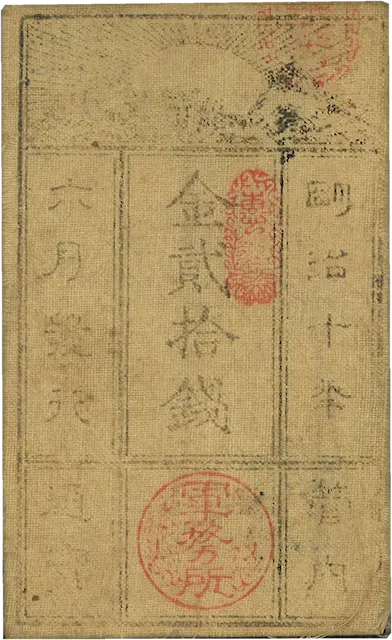 明治十年管内
金貳拾錢
軍務所
六月發行通用